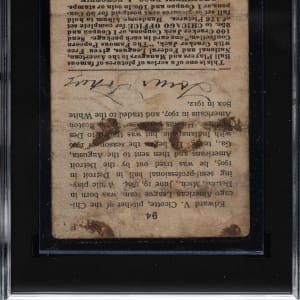 94
Edward V. Cicotte, pitcher of the Chi-
cago American League team, was born in
Detroit, Mich., June 19, 1884. While play-
ing semi-professional ball in Detroit in
1905, he was tried out by the Detroit
Americans and then sent to the Augusta,
Ga., the season of 1906
with Indianapolis but was to Des
Boston
Americans in 1907, and traded to the White
Sox in 1912.
Louis
This is one of a series of pictures of famous
Ball Players and Managers in the American,
National and Federal Leagues, given Free
with Cracker Jack, "The Famous Popcorn
Confection," one card in each package. Send
100 Cracker Jack Coupons, or 1 Coupon and
25c. to CHICAGO OFFICE for complete set
of 176 Pictures. Handsome Album to hold
full set of Pictures sent postpaid for 50
Coupons, or 1 Coupon and 10c in coin or stamps.